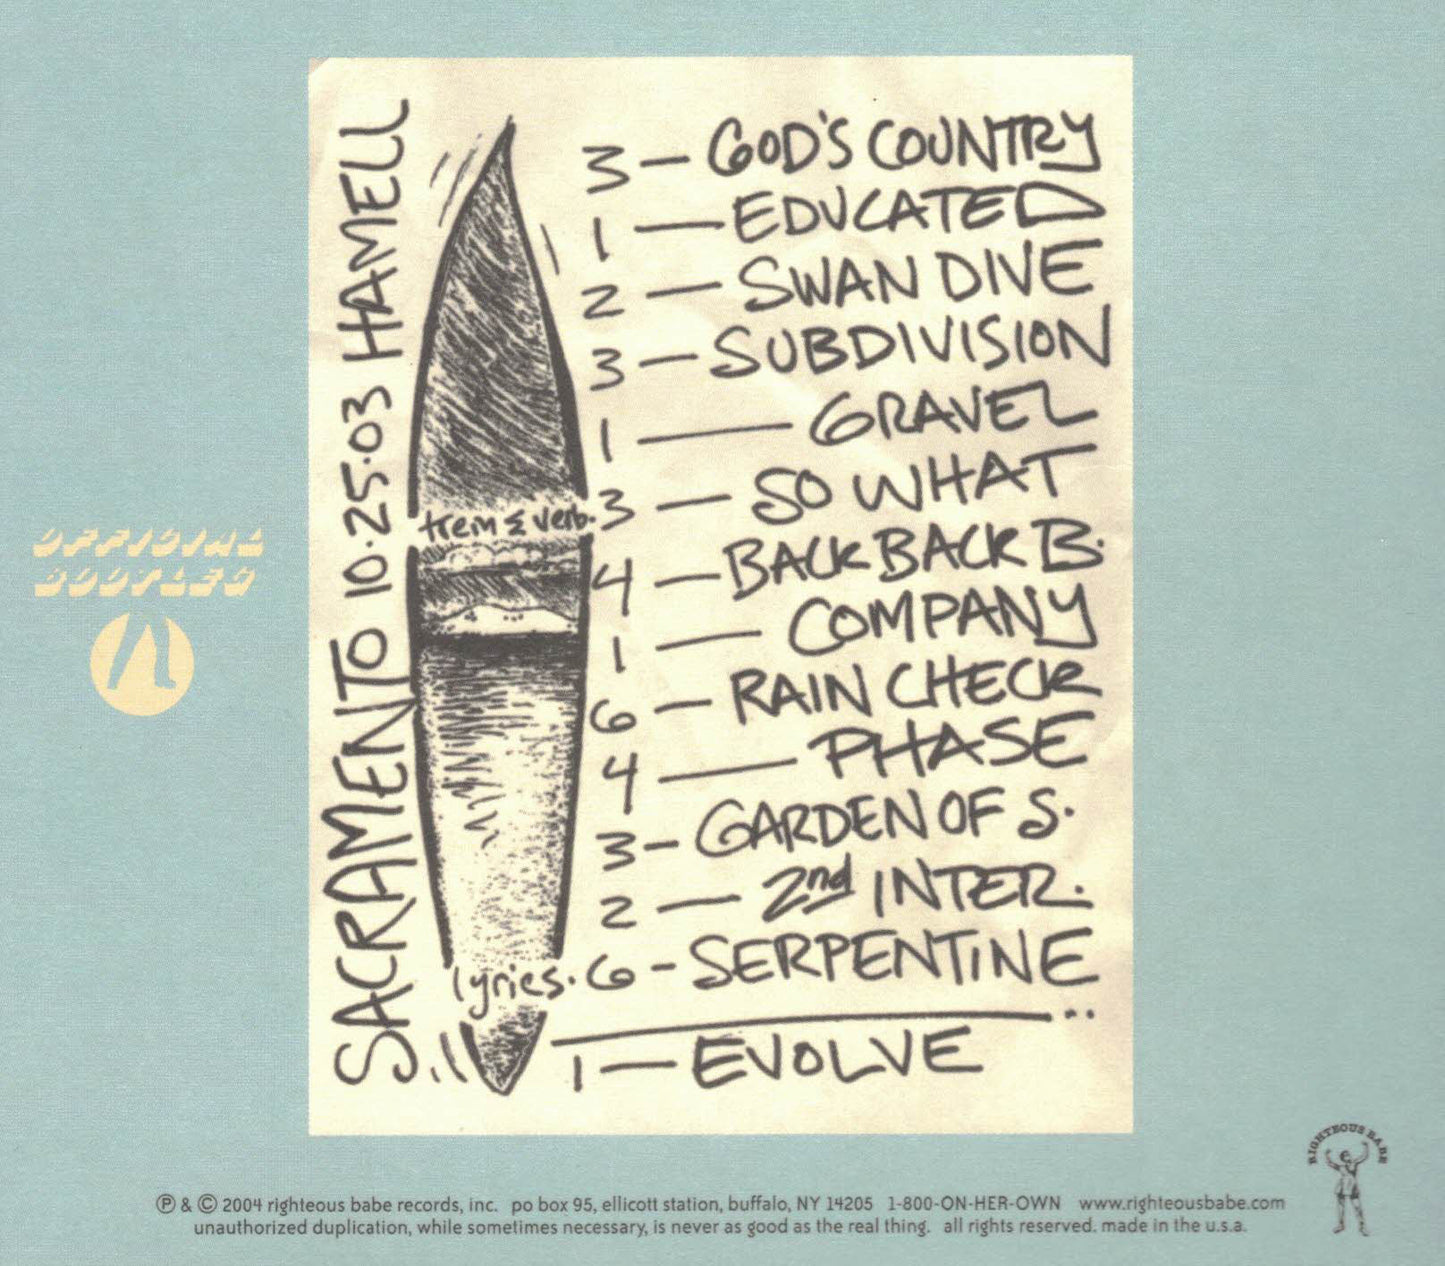 SACRAMENTO 10·25·03 HAMELL
3 — GOD'S COUNTRY
1 — EDUCATED
2 — SWAN DIVE
3 — SUBDIVISION
1 — GRAVEL
3 — SO WHAT
4 — BACK BACK B.
1 — COMPANY
6 — RAIN CHECK
4 — PHASE
3 — GARDEN OF S.
2 — 2nd INTER.
6 - SERPENTINE
1 — EVOLVE
trem & verb.
lyrics.
OFFICIAL
BOOTLEG
RIGHTEOUS BABE
℗ & © 2004 righteous babe records, inc. po box 95, ellicott station, buffalo, NY 14205 1-800-ON-HER-OWN www.righteousbabe.com
unauthorized duplication, while sometimes necessary, is never as good as the real thing. all rights reserved. made in the u.s.a.